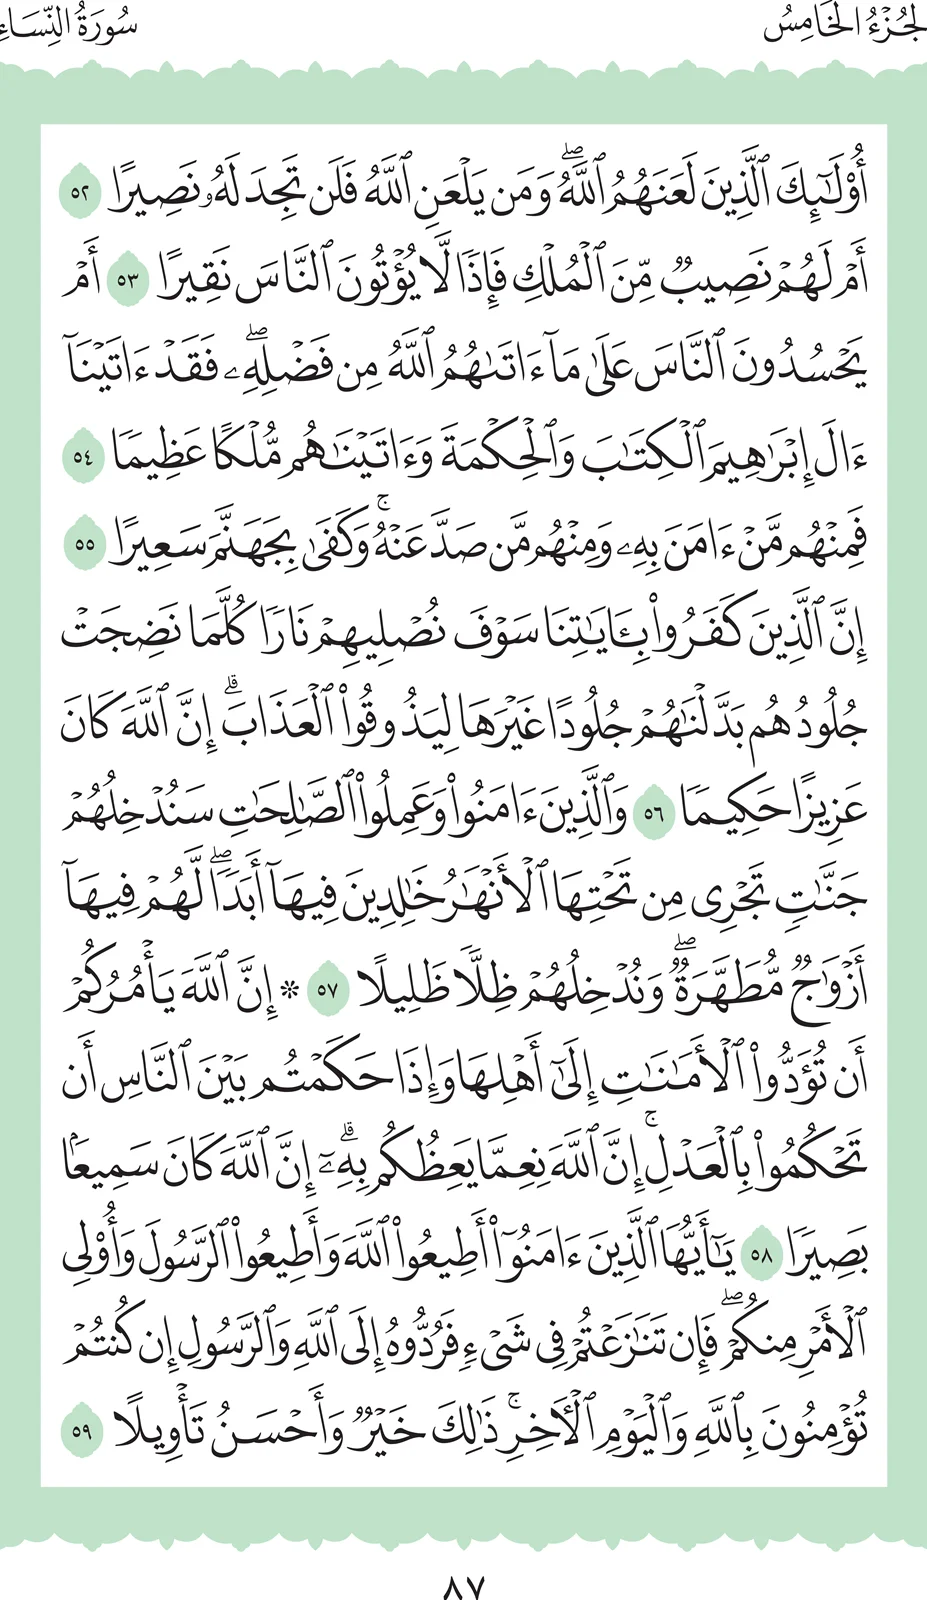 سُورَةُ النِّسَاءِ
الجُزْءُ الخَامِسُ
أُوْلَٰٓئِكَ ٱلَّذِينَ لَعَنَهُمُ ٱللَّهُۖ وَمَن يَلْعَنِ ٱللَّهُ فَلَن تَجِدَ لَهُۥ نَصِيرًا ٥٢
أَمْ لَهُمْ نَصِيبٞ مِّنَ ٱلْمُلْكِ فَإِذٗا لَّا يُؤْتُونَ ٱلنَّاسَ نَقِيرًا ٥٣ أَمْ
يَحْسُدُونَ ٱلنَّاسَ عَلَىٰ مَآ ءَاتَىٰهُمُ ٱللَّهُ مِن فَضْلِهِۦۖ فَقَدْ ءَاتَيْنَآ
ءَالَ إِبْرَٰهِيمَ ٱلْكِتَٰبَ وَٱلْحِكْمَةَ وَءَاتَيْنَٰهُم مُّلْكًا عَظِيمٗا ٥٤
فَمِنْهُم مَّنْ ءَامَنَ بِهِۦ وَمِنْهُم مَّن صَدَّ عَنْهُۚ وَكَفَىٰ بِجَهَنَّمَ سَعِيرًا ٥٥
إِنَّ ٱلَّذِينَ كَفَرُواْ بِـَٔايَٰتِنَا سَوْفَ نُصْلِيهِمْ نَارٗا كُلَّمَا نَضِجَتْ
جُلُودُهُم بَدَّلْنَٰهُمْ جُلُودًا غَيْرَهَا لِيَذُوقُواْ ٱلْعَذَابَۗ إِنَّ ٱللَّهَ كَانَ
عَزِيزًا حَكِيمٗا ٥٦ وَٱلَّذِينَ ءَامَنُواْ وَعَمِلُواْ ٱلصَّٰلِحَٰتِ سَنُدْخِلُهُمْ
جَنَّٰتٖ تَجْرِي مِن تَحْتِهَا ٱلْأَنْهَٰرُ خَٰلِدِينَ فِيهَآ أَبَدٗاۖ لَّهُمْ فِيهَآ
أَزْوَٰجٞ مُّطَهَّرَةٞۖ وَنُدْخِلُهُمْ ظِلّٗا ظَلِيلًا ٥٧ ۞ إِنَّ ٱللَّهَ يَأْمُرُكُمْ
أَن تُؤَدُّواْ ٱلْأَمَٰنَٰتِ إِلَىٰٓ أَهْلِهَا وَإِذَا حَكَمْتُم بَيْنَ ٱلنَّاسِ أَن
تَحْكُمُواْ بِٱلْعَدْلِۚ إِنَّ ٱللَّهَ نِعِمَّا يَعِظُكُم بِهِۦٓۗ إِنَّ ٱللَّهَ كَانَ سَمِيعَۢا
بَصِيرٗا ٥٨ يَٰٓأَيُّهَا ٱلَّذِينَ ءَامَنُوٓاْ أَطِيعُواْ ٱللَّهَ وَأَطِيعُواْ ٱلرَّسُولَ وَأُوْلِي
ٱلْأَمْرِ مِنكُمْۖ فَإِن تَنَٰزَعْتُمْ فِي شَيْءٖ فَرُدُّوهُ إِلَى ٱللَّهِ وَٱلرَّسُولِ إِن كُنتُمْ
تُؤْمِنُونَ بِٱللَّهِ وَٱلْيَوْمِ ٱلْأٓخِرِۚ ذَٰلِكَ خَيْرٞ وَأَحْسَنُ تَأْوِيلًا ٥٩
٨٧